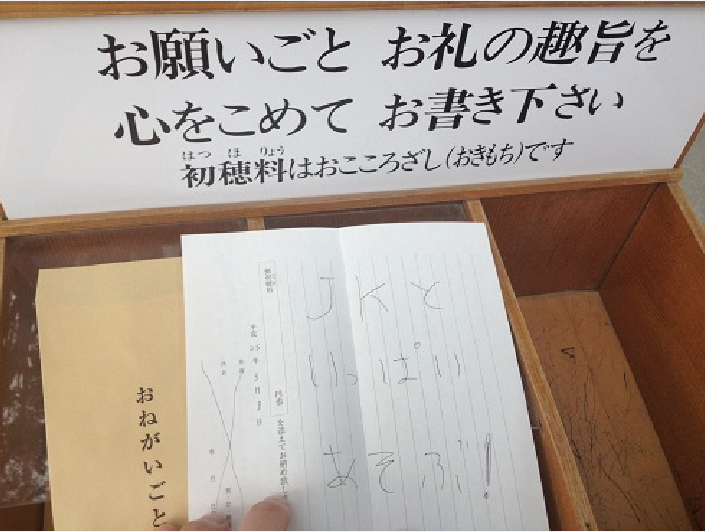 お願いごと お礼の趣旨を
心をこめて お書き下さい
はつ ほ りょう
初穂料はおこころざし(おきもち)です
おねがいごと
JKと
いっぱい
あそぶ!
平成 25年 3月 1日